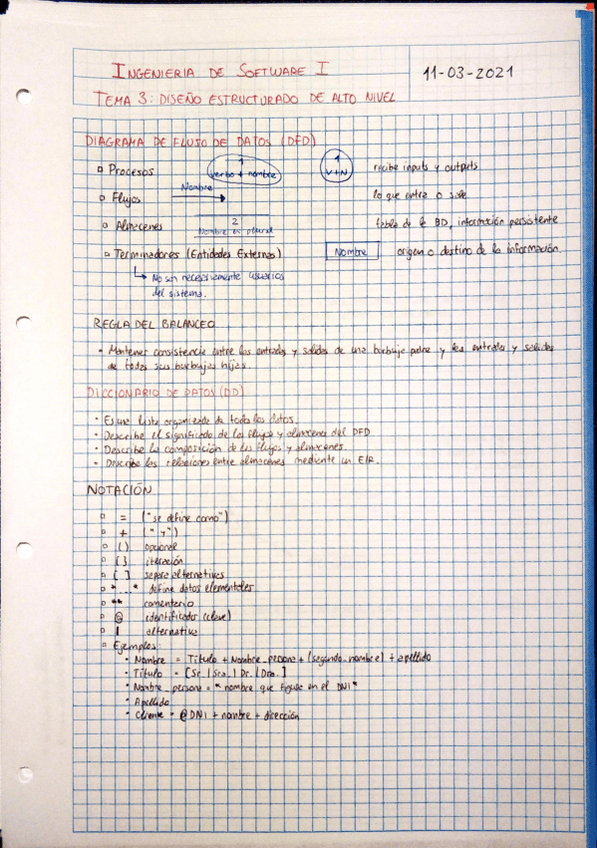 INGENIERIA DE SOFTWARE I
11-03-2021
TEMA 3: DISEÑO ESTRUCTURADO DE ALTO NIVEL
DIAGRAMA DE FLUJO DE DATOS (DFD)
Procesos 1 verbo + nombre 1 V+N recibe inputs y outputs
Flujos Nombre lo que entra o sale
Almacenes 2 Nombre en plural tabla de la BD, información persistente
Terminadores (Entidades Externas) Nombre origen o destino de la información.
No son necesariamente usuarios
del sistema.
REGLA DEL BALANCEO
• Mantener consistencia entre las entradas y salidas de una burbuja padre y las entradas y salidas
de todas sus burbujas hijas.
DICCIONARIO DE DATOS (DD)
• Es una lista organizada de todos los datos.
• Describe el significado de los flujos y almacenes del DFD
• Describe la composición de los flujos y almacenes.
• Describe las relaciones entre almacenes mediante un E/R.
NOTACIÓN
= ("se define como")
+ ("y")
( ) opcional
{ } iteración
[ ] separa alternativas
*...* define datos elementales
** comentario
@ identificador (clave)
| alternativa
Ejemplos:
• Nombre = Título + Nombre_persona + (segundo_nombre) + apellido
• Título = [Sr. | Sra. | Dr. | Dra.]
• Nombre_persona = * nombre que figura en el DNI *
• Apellido
• Cliente = @DNI + nombre + dirección